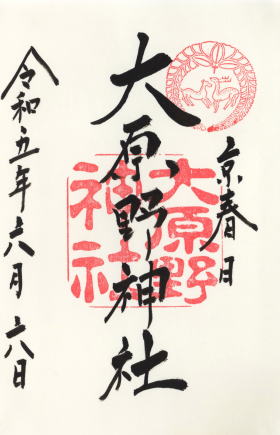 京春日
大原野神社
大原野
神社
令和五年六月六日